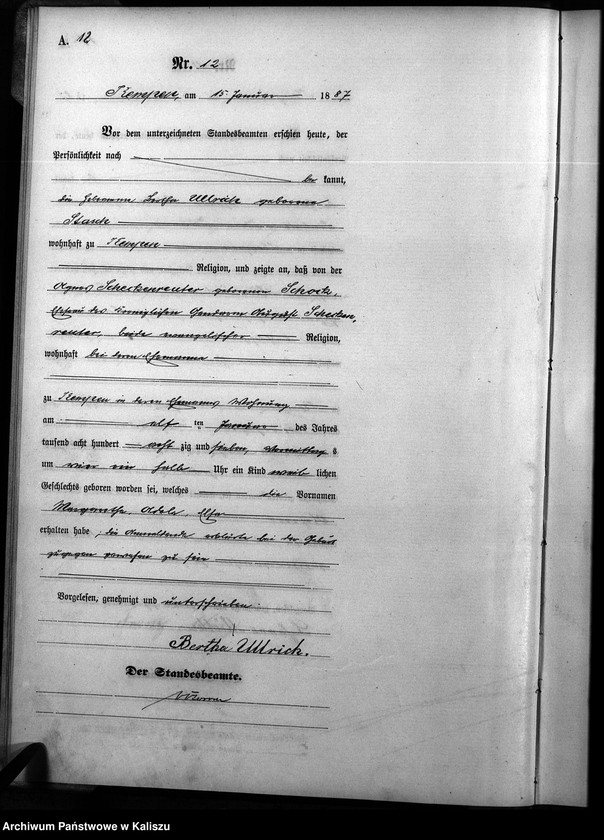 A. 12
Nr. 12
Kempen, am 15. Januar 1887
Vor dem unterzeichneten Standesbeamten erschien heute, der
Persönlichkeit nach
be kannt,
die Hebamme Bertha Ullrich geborene
Stark
wohnhaft zu Kempen
Religion, und zeigte an, daß von der
Agnes Scheckenreuter geborenen Schock,
Ehefrau des königlichen Gendarm August Schecken,
reuter, beide evangelischer Religion,
wohnhaft bei deren Ehemanne
zu Kempen in deren Ehemannes Wohnung
am elf ten Januar des Jahres
tausend acht hundert acht zig und sieben, Vormittag s
um vier ein halb Uhr ein Kind weib lichen
Geschlechts geboren worden sei, welches die Vornamen
Margarethe Adele Elsa
erhalten habe; die Anmeldende erklärte bei der Geburt
zugegen gewesen zu sein
Vorgelesen, genehmigt und unterschrieben
Bertha Ullrich.
Der Standesbeamte.
Archiwum Państwowe w Kaliszu